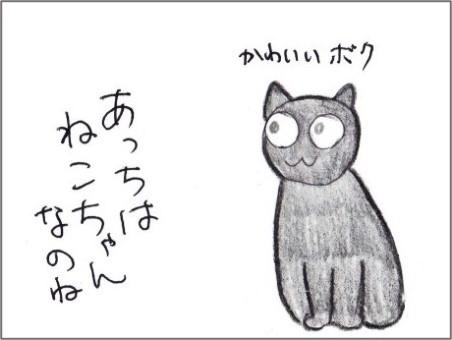 かわいいボク
あっちは
ねこちゃん
なのね